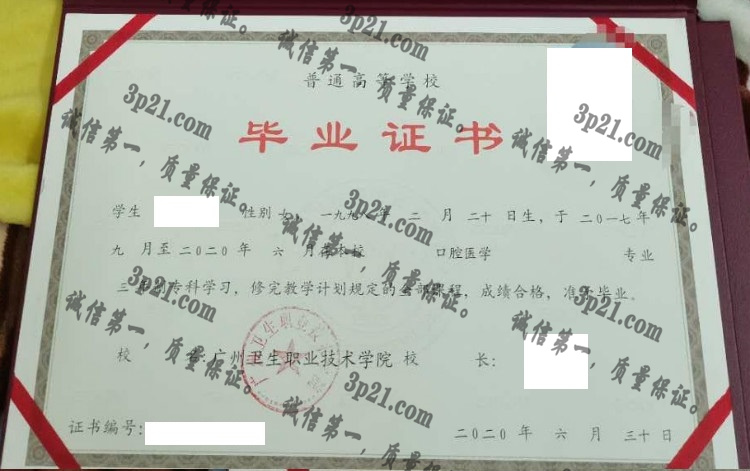 普通高等学校
毕业证书
学生 性别 女 一九九八年 二 月 二十 日生，于 二〇一七年
九 月至二〇二〇年 六 月在本校 口腔医学 专业
三 年制专科学习，修完教学计划规定的全部课程，成绩合格，准予毕业。
校 名：广州卫生职业技术学院 校 长：
证书编号： 二〇二〇年 六 月 三十日
3p21.com
诚信第一，质量保证。
3p21.com
诚信第一，质量保证。
3p21.com
诚信第一，质量保证。
3p21.com
诚信第一，质量保证。
3p21.com
诚信第一，质量保证。
3p21.com
诚信第一，质量保证。
3p21.com
诚信第一，质量保证。
3p21.com
诚信第一，质量保证。